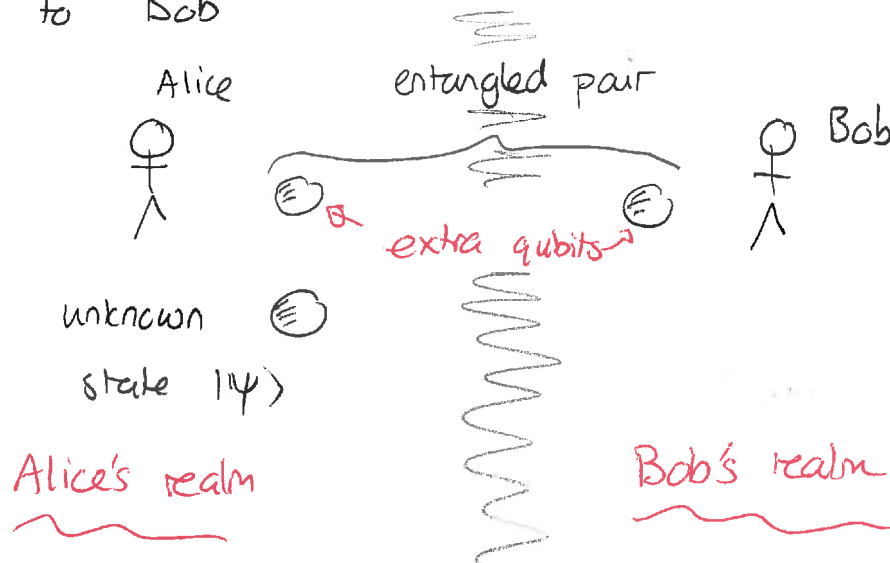 to Bob
Alice
entangled pair
Bob
extra qubits
unknown
state |ψ⟩
Alice's realm
Bob's realm